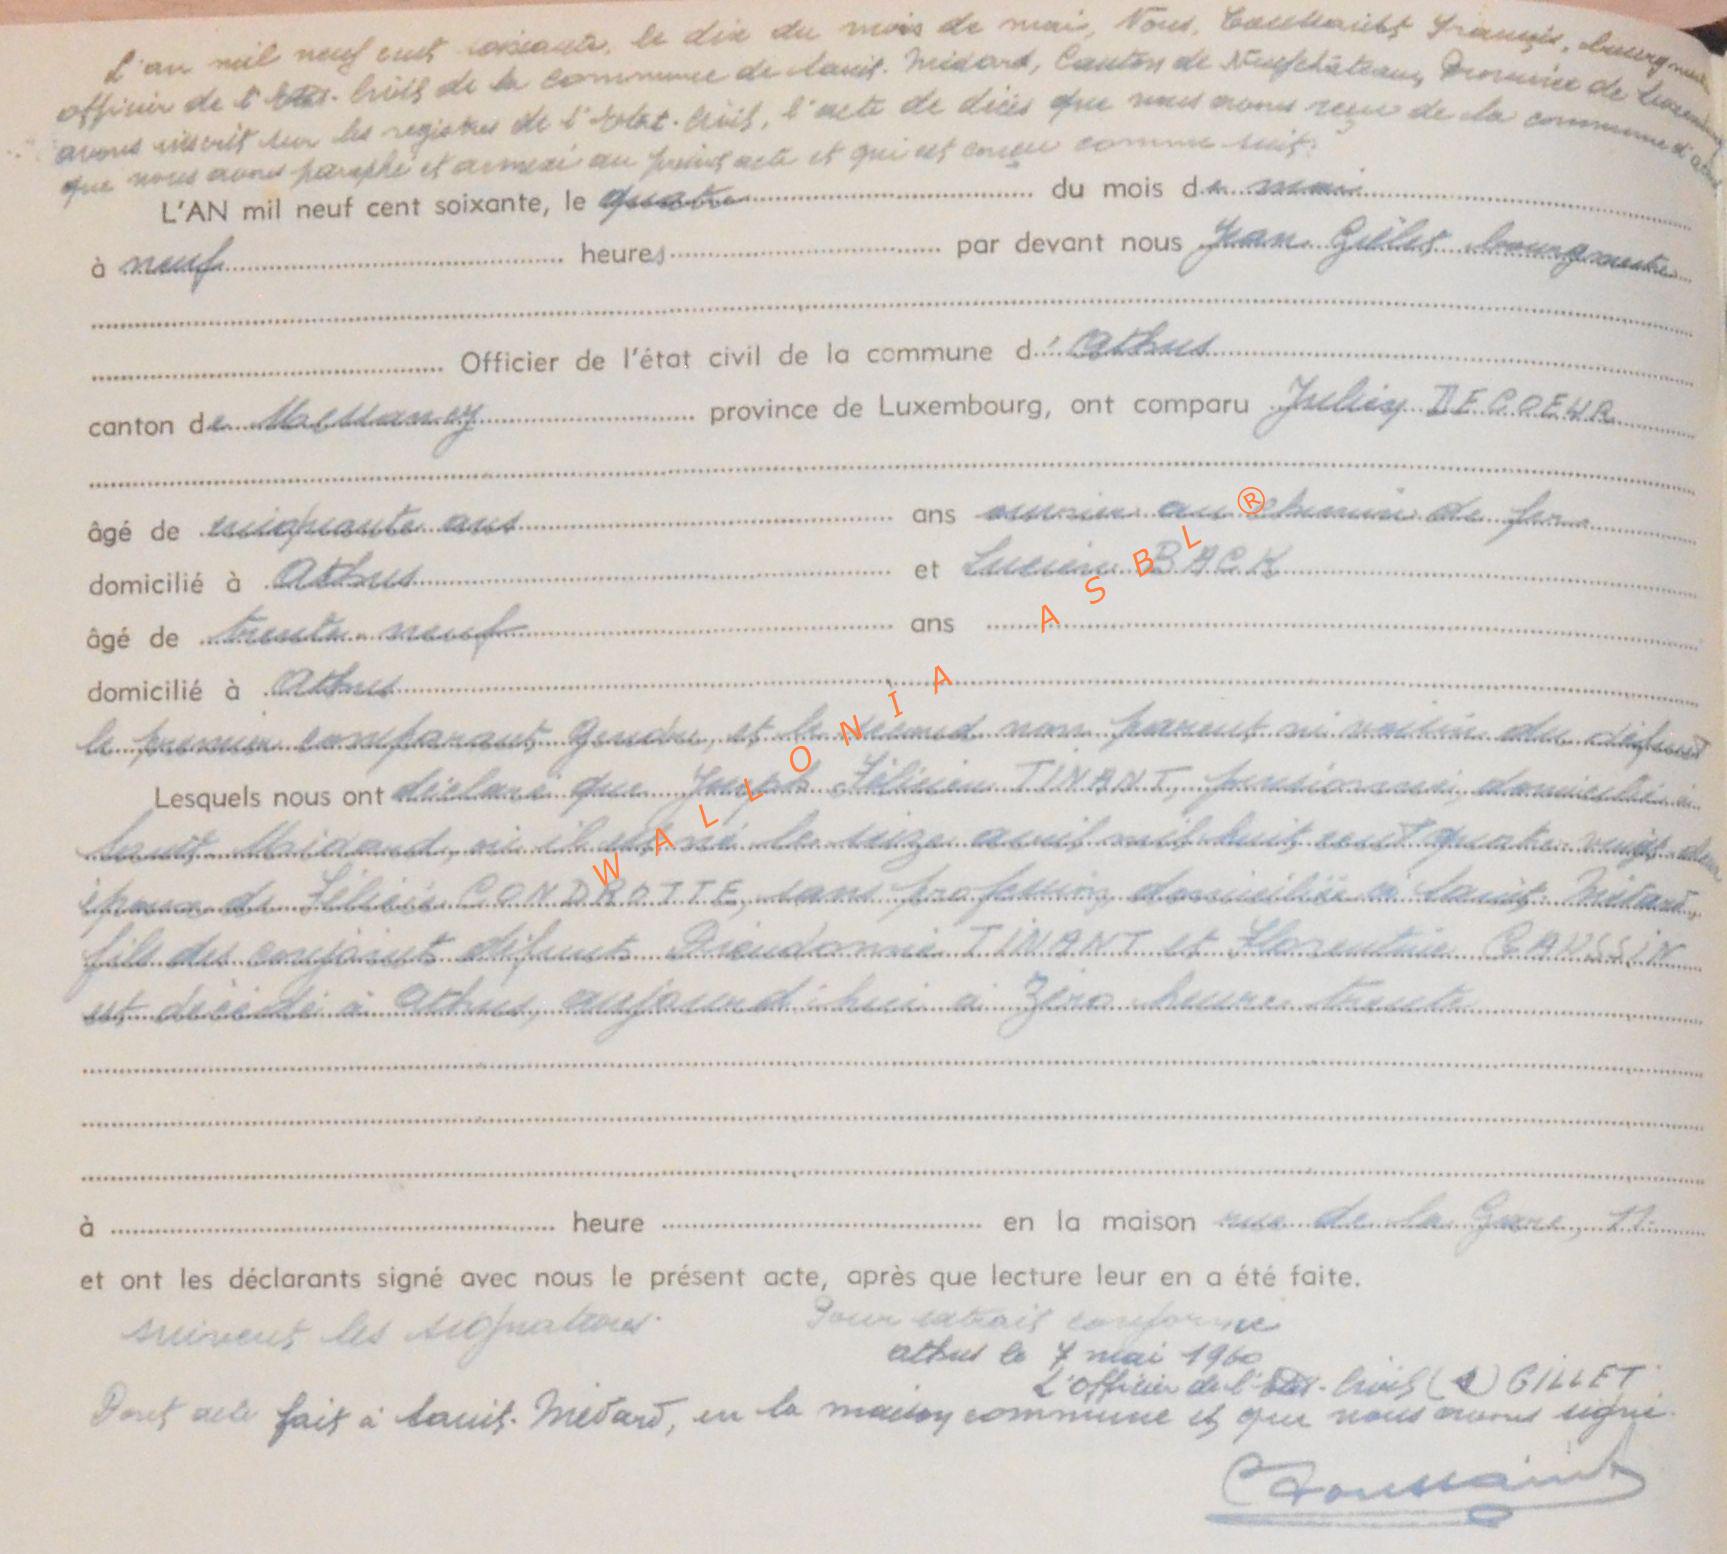 L'an mil neuf cent soixante, le dix du mois de mai, Nous, Toussaint François, bourgmestre
officier de l'Etat-Civil de la commune de Saint-Médard, Canton de Neufchâteau, Province de Luxembourg
avons inscrit sur les registres de l'Etat-Civil, l'acte de décès que nous avons reçu de la commune d'Athus
que nous avons paraphé et annexé au présent acte et qui est conçu comme suit:
L'AN mil neuf cent soixante, le quatre du mois de mai
à neuf heures par devant nous Jean Gillet bourgmestre
Officier de l'état civil de la commune d'Athus
canton de Messancy province de Luxembourg, ont comparu Julien DECOEUR
âgé de cinquante ans ans ouvrier au chemin de fer
domicilié à Athus et Lucien BACK
âgé de trente-neuf ans
domicilié à Athus
le premier comparant gendre, et le second non parent ni voisin du défunt
Lesquels nous ont déclaré que Joseph Félicien TINANT, pensionné, domicilié à
Saint-Médard, où il est né le seize avril mil huit cent quatre-vingt-deux
époux de Félicie CONDROTTE, sans profession, domiciliée à Saint-Médard,
fils des conjoints défunts Dieudonné TINANT et Florentine GAUSSIN
est décédé à Athus, aujourd'hui à zéro heure trente
à heure en la maison rue de la Gare, 11.
et ont les déclarants signé avec nous le présent acte, après que lecture leur en a été faite.
suivent les signatures. Pour extrait conforme
Athus le 7 mai 1960
L'officier de l'Etat-Civil (s) GILLET
Dont acte fait à Saint-Médard, en la maison commune et que nous avons signé.
Toussaint
WALLONIA ASBL ®